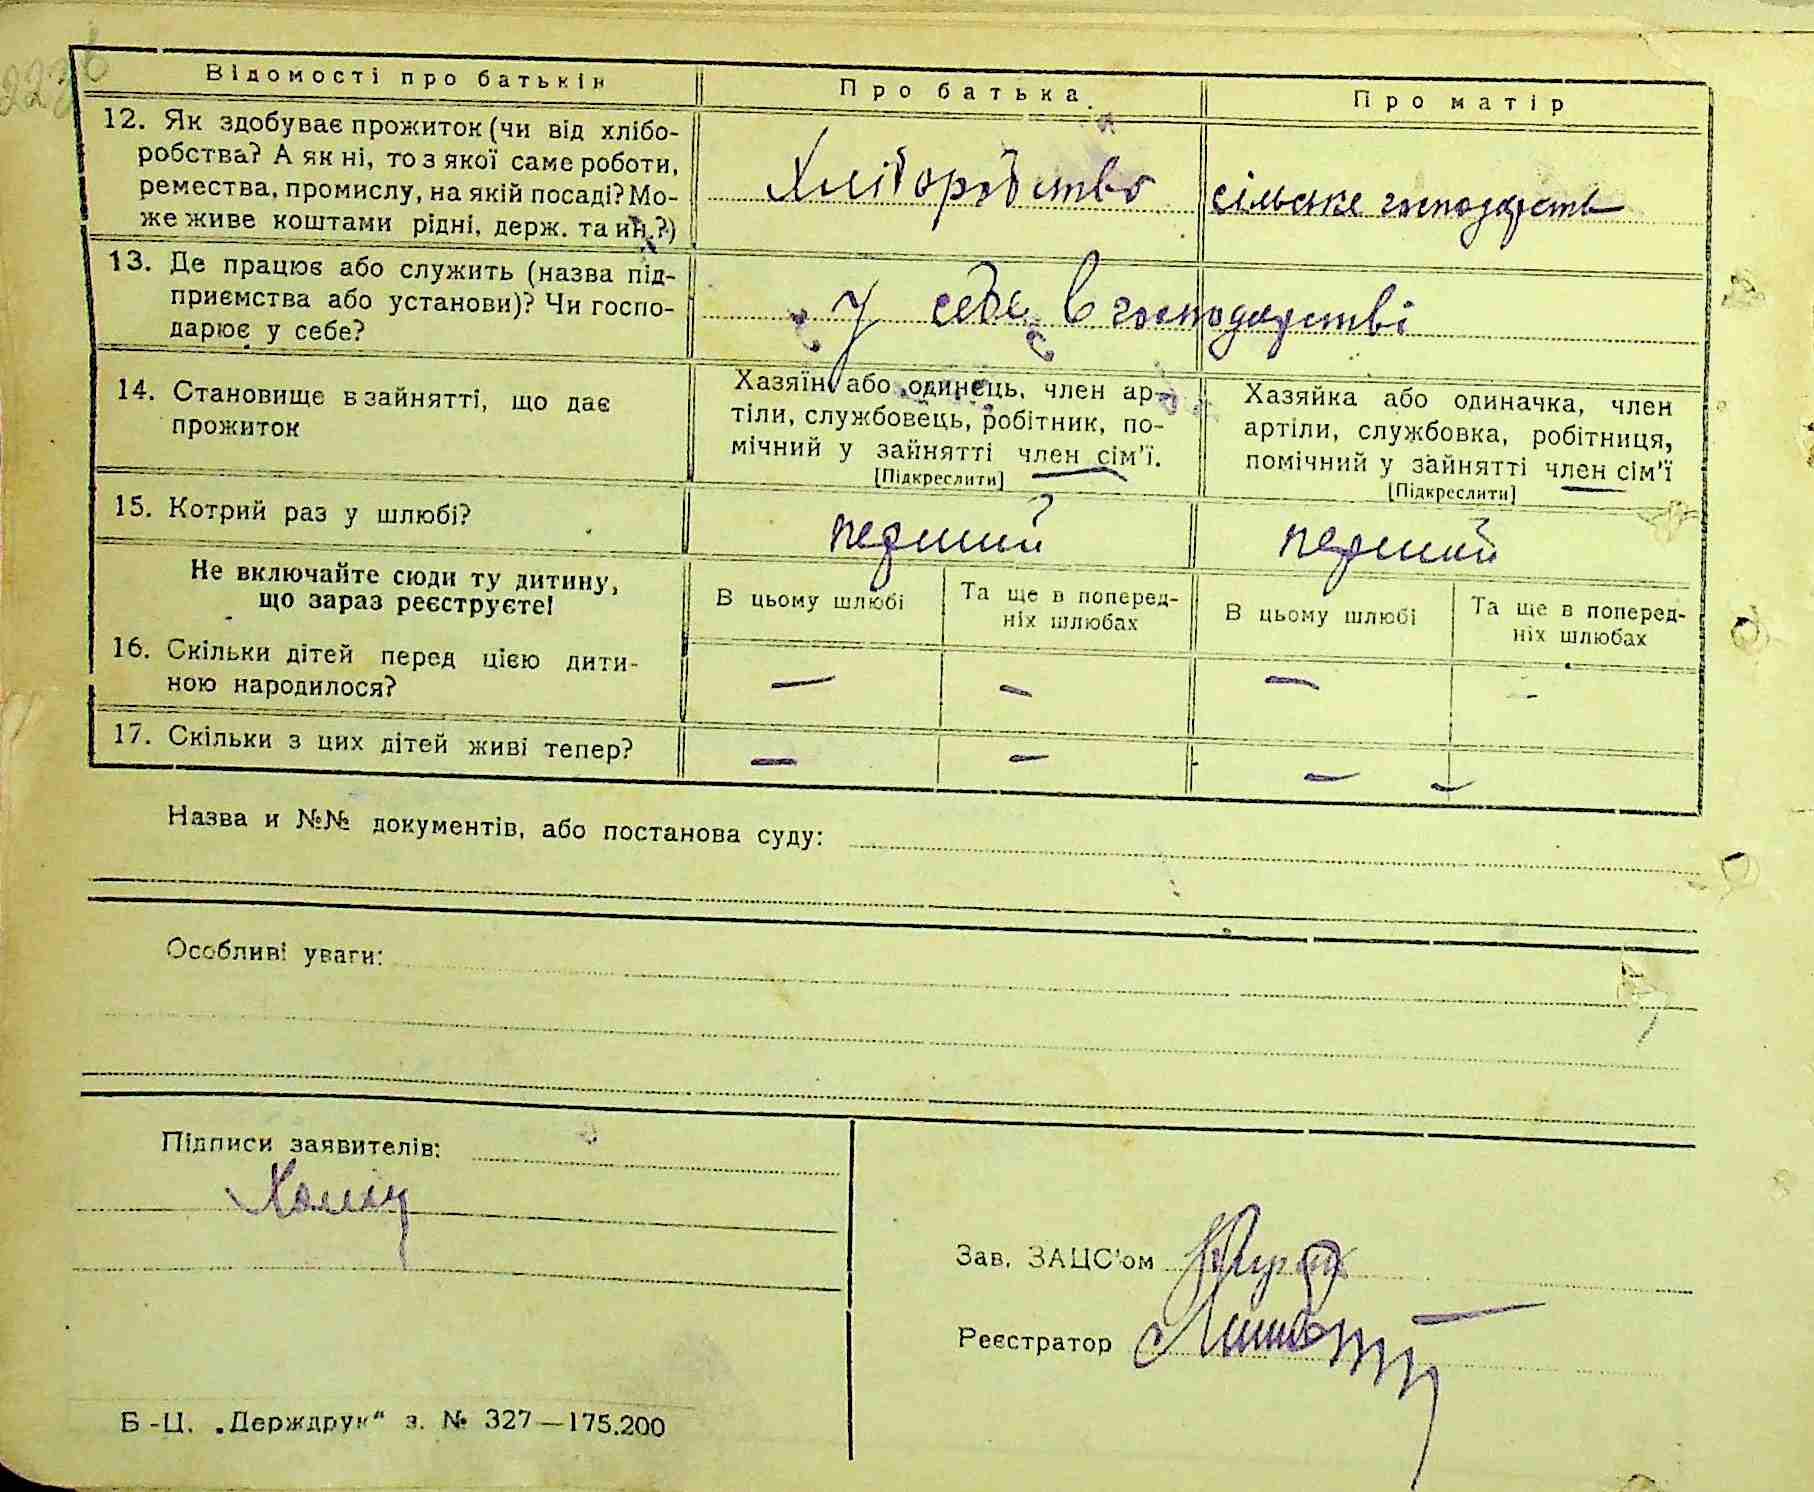 Відомості про батьків
Про батька
Про матір
12. Як здобуває прожиток (чи від хлібо-
робства? А як ні, то з якої саме роботи,
ремества, промислу, на якій посаді? Мо-
же живе коштами рідні, держ. та ин.?)
Хліборобство
сільське господарств
13. Де працює або служить (назва під-
приємства або установи)? Чи госпо-
дарює у себе?
у себе в господарстві
14. Становище в зайнятті, що дає
прожиток
Хазяїн або одинець, член ар-
тіли, службовець, робітник, по-
мічний у зайнятті член сім'ї.
[Підкреслити]
Хазяйка або одиначка, член
артіли, службовка, робітниця,
помічний у зайнятті член сім'ї
[Підкреслити]
15. Котрий раз у шлюбі?
перший
перший
Не включайте сюди ту дитину,
що зараз реєструєте!
В цьому шлюбі
Та ще в поперед-
ніх шлюбах
В цьому шлюбі
Та ще в поперед-
ніх шлюбах
16. Скільки дітей перед цією дити-
ною народилося?
— — — —
17. Скільки з цих дітей живі тепер?
— — — —
Назва и №№ документів, або постанова суду:
Особливі уваги:
Підписи заявителів:
Зав. ЗАЦС'ом
Реєстратор
Б-Ц. „Держдрук“ з. № 327—175.200